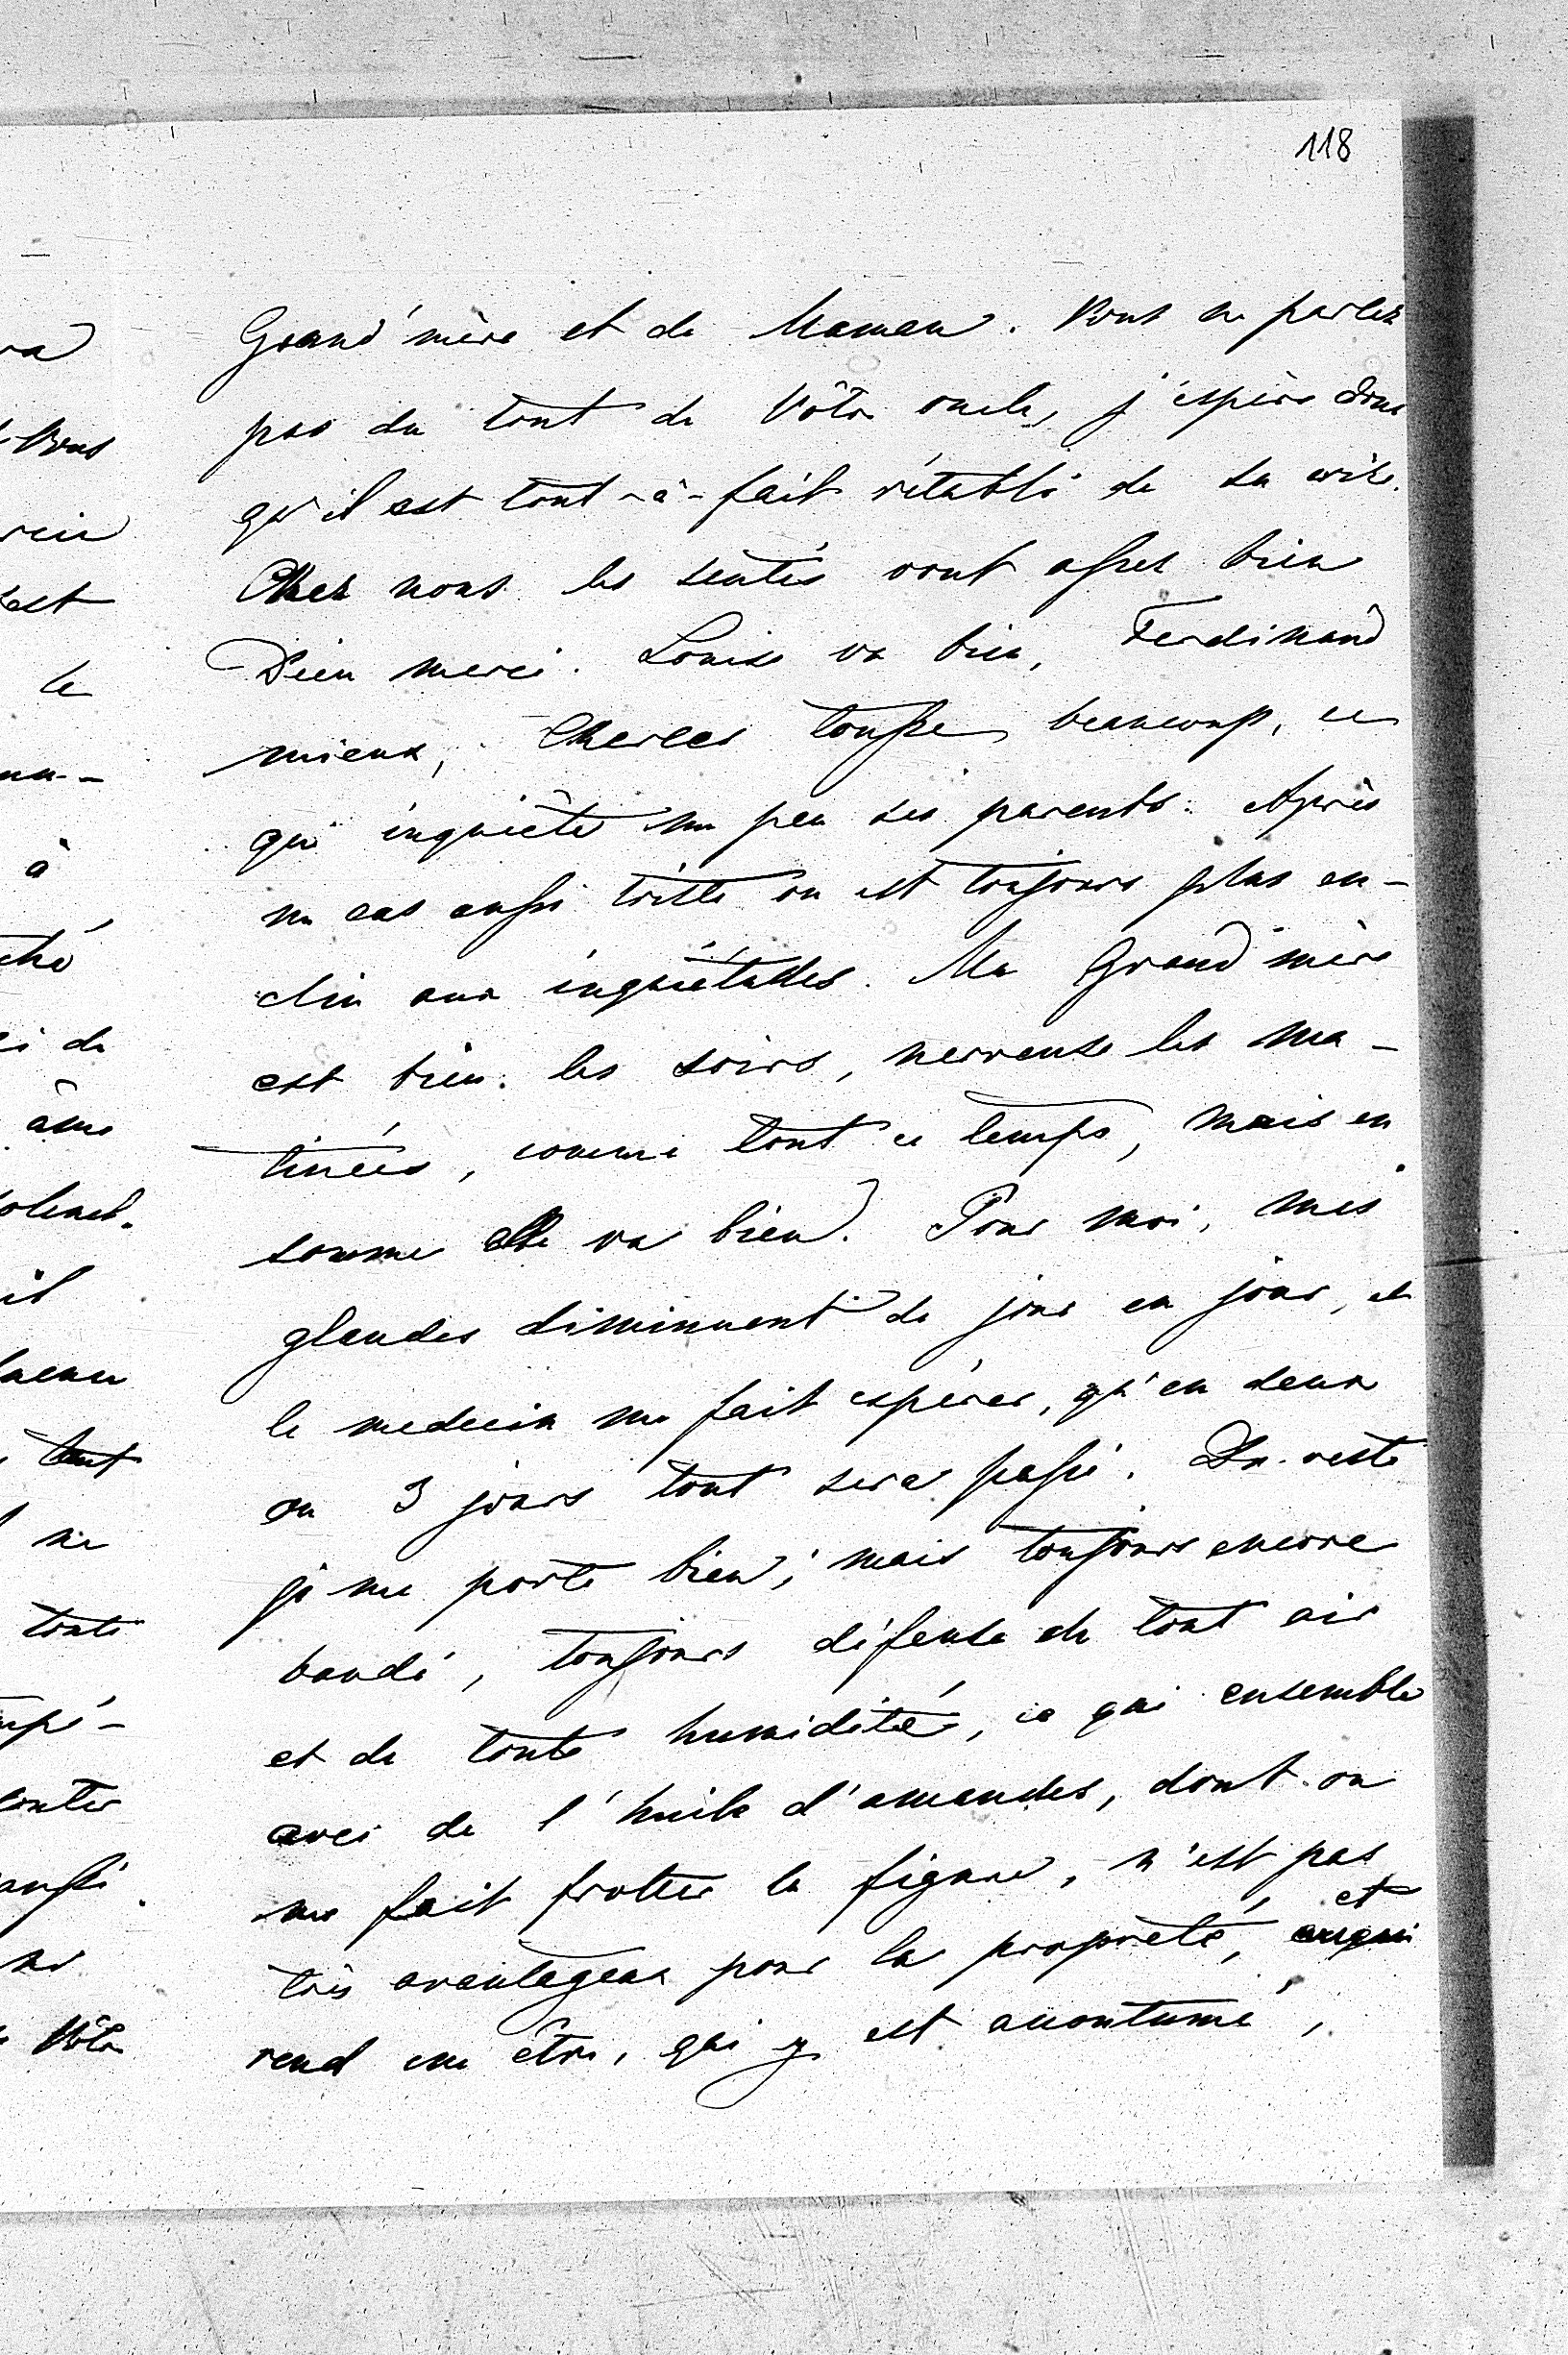 118
Grand'mère et de Maman. Vous ne parlez
pas du tout de Vôtre oncle, j'espère donc
qu'il est tout-à-fait rétabli de sa crise.
Chez nous les santés vont assez bien
Dieu merci. Louise va bien, Ferdinand
mieux, Charles tousse beaucoup, ce
qui inquiète un peu ses parents. Après
un cas aussi triste on est toujours plus en-
clin aux inquiétudes. Ma Grand'mère
est bien les soirs, nerveuse les ma-
tinées, comme tout ce temps, mais en
somme elle va bien. Pour moi, mes
glandes diminuent de jour en jour, et
le medecin me fait espérer, qu'en deux
ou 3 jours tout sera passé. Du reste
je me porte bien; mais toujours encore
bandé, toujours défense de tout air
et de toute humidité, ce qui ensemble
avec de l'huile d'amandes, dont on
me fait frotter la figure, n'est pas
très avantageux pour la propreté, et
rend un être, qui y est accoutumé,
à
le
âme
il
ne
toute
Vôtre